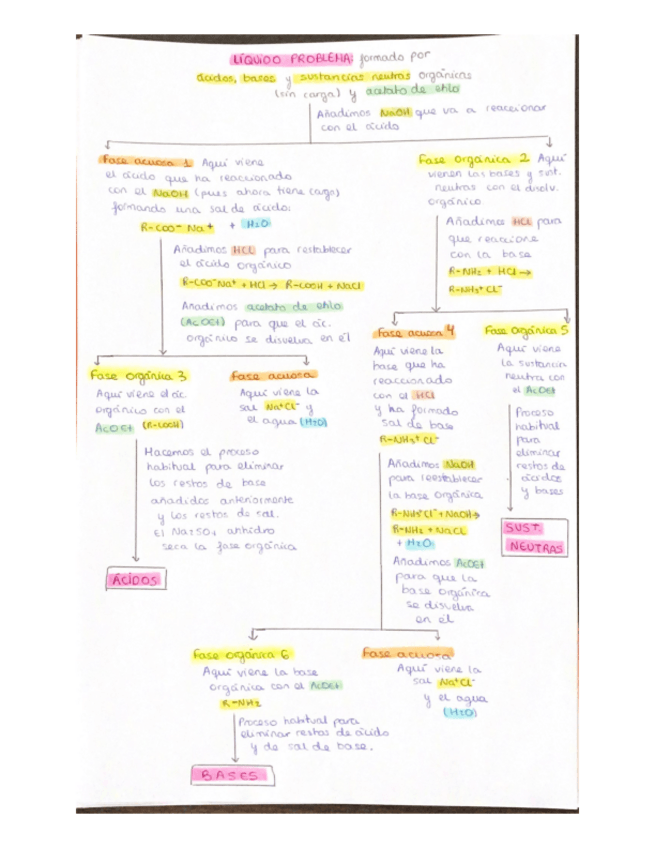 LÍQUIDO PROBLEMA: formado por
ácidos, bases y sustancias neutras orgánicas
(sin carga) y acetato de etilo
Añadimos NaOH que va a reaccionar
con el ácido
Fase acuosa 1 Aquí viene
el ácido que ha reaccionado
con el NaOH (pues ahora tiene carga)
formando una sal de ácido:
R-COO⁻ Na⁺ + H2O
Añadimos HCl para restablecer
el ácido orgánico
R-COO⁻Na⁺ + HCl → R-COOH + NaCl
Añadimos acetato de etilo
(AcOEt) para que el ác.
orgánico se disuelva en él
Fase orgánica 3
Aquí viene el ác.
orgánico con el
AcOEt (R-COOH)
Hacemos el proceso
habitual para eliminar
los restos de base
añadidos anteriormente
y los restos de sal.
El Na2SO4 anhidro
seca la fase orgánica
ÁCIDOS
Fase acuosa
Aquí viene la
sal Na⁺Cl⁻ y
el agua (H2O)
Fase orgánica 2 Aquí
vienen las bases y sust.
neutras con el disolv.
orgánico
Añadimos HCl para
que reaccione
con la base
R-NH2 + HCl →
R-NH3⁺Cl⁻
Fase acuosa 4
Aquí viene la
base que ha
reaccionado
con el HCl
y ha formado
sal de base
R-NH3⁺ Cl⁻
Añadimos NaOH
para reestablecer
la base orgánica
R-NH3⁺Cl⁻ + NaOH →
R-NH2 + NaCl
+ H2O
Añadimos AcOEt
para que la
base orgánica
se disuelva
en él
Fase orgánica 5
Aquí viene
la sustancia
neutra con
el AcOEt
Proceso
habitual
para
eliminar
restos de
ácidos
y bases
SUST.
NEUTRAS
Fase orgánica 6
Aquí viene la base
orgánica con el AcOEt
R-NH2
Proceso habitual para
eliminar restos de ácido
y de sal de base.
BASES
Fase acuosa
Aquí viene la
sal Na⁺Cl⁻
y el agua
(H2O)